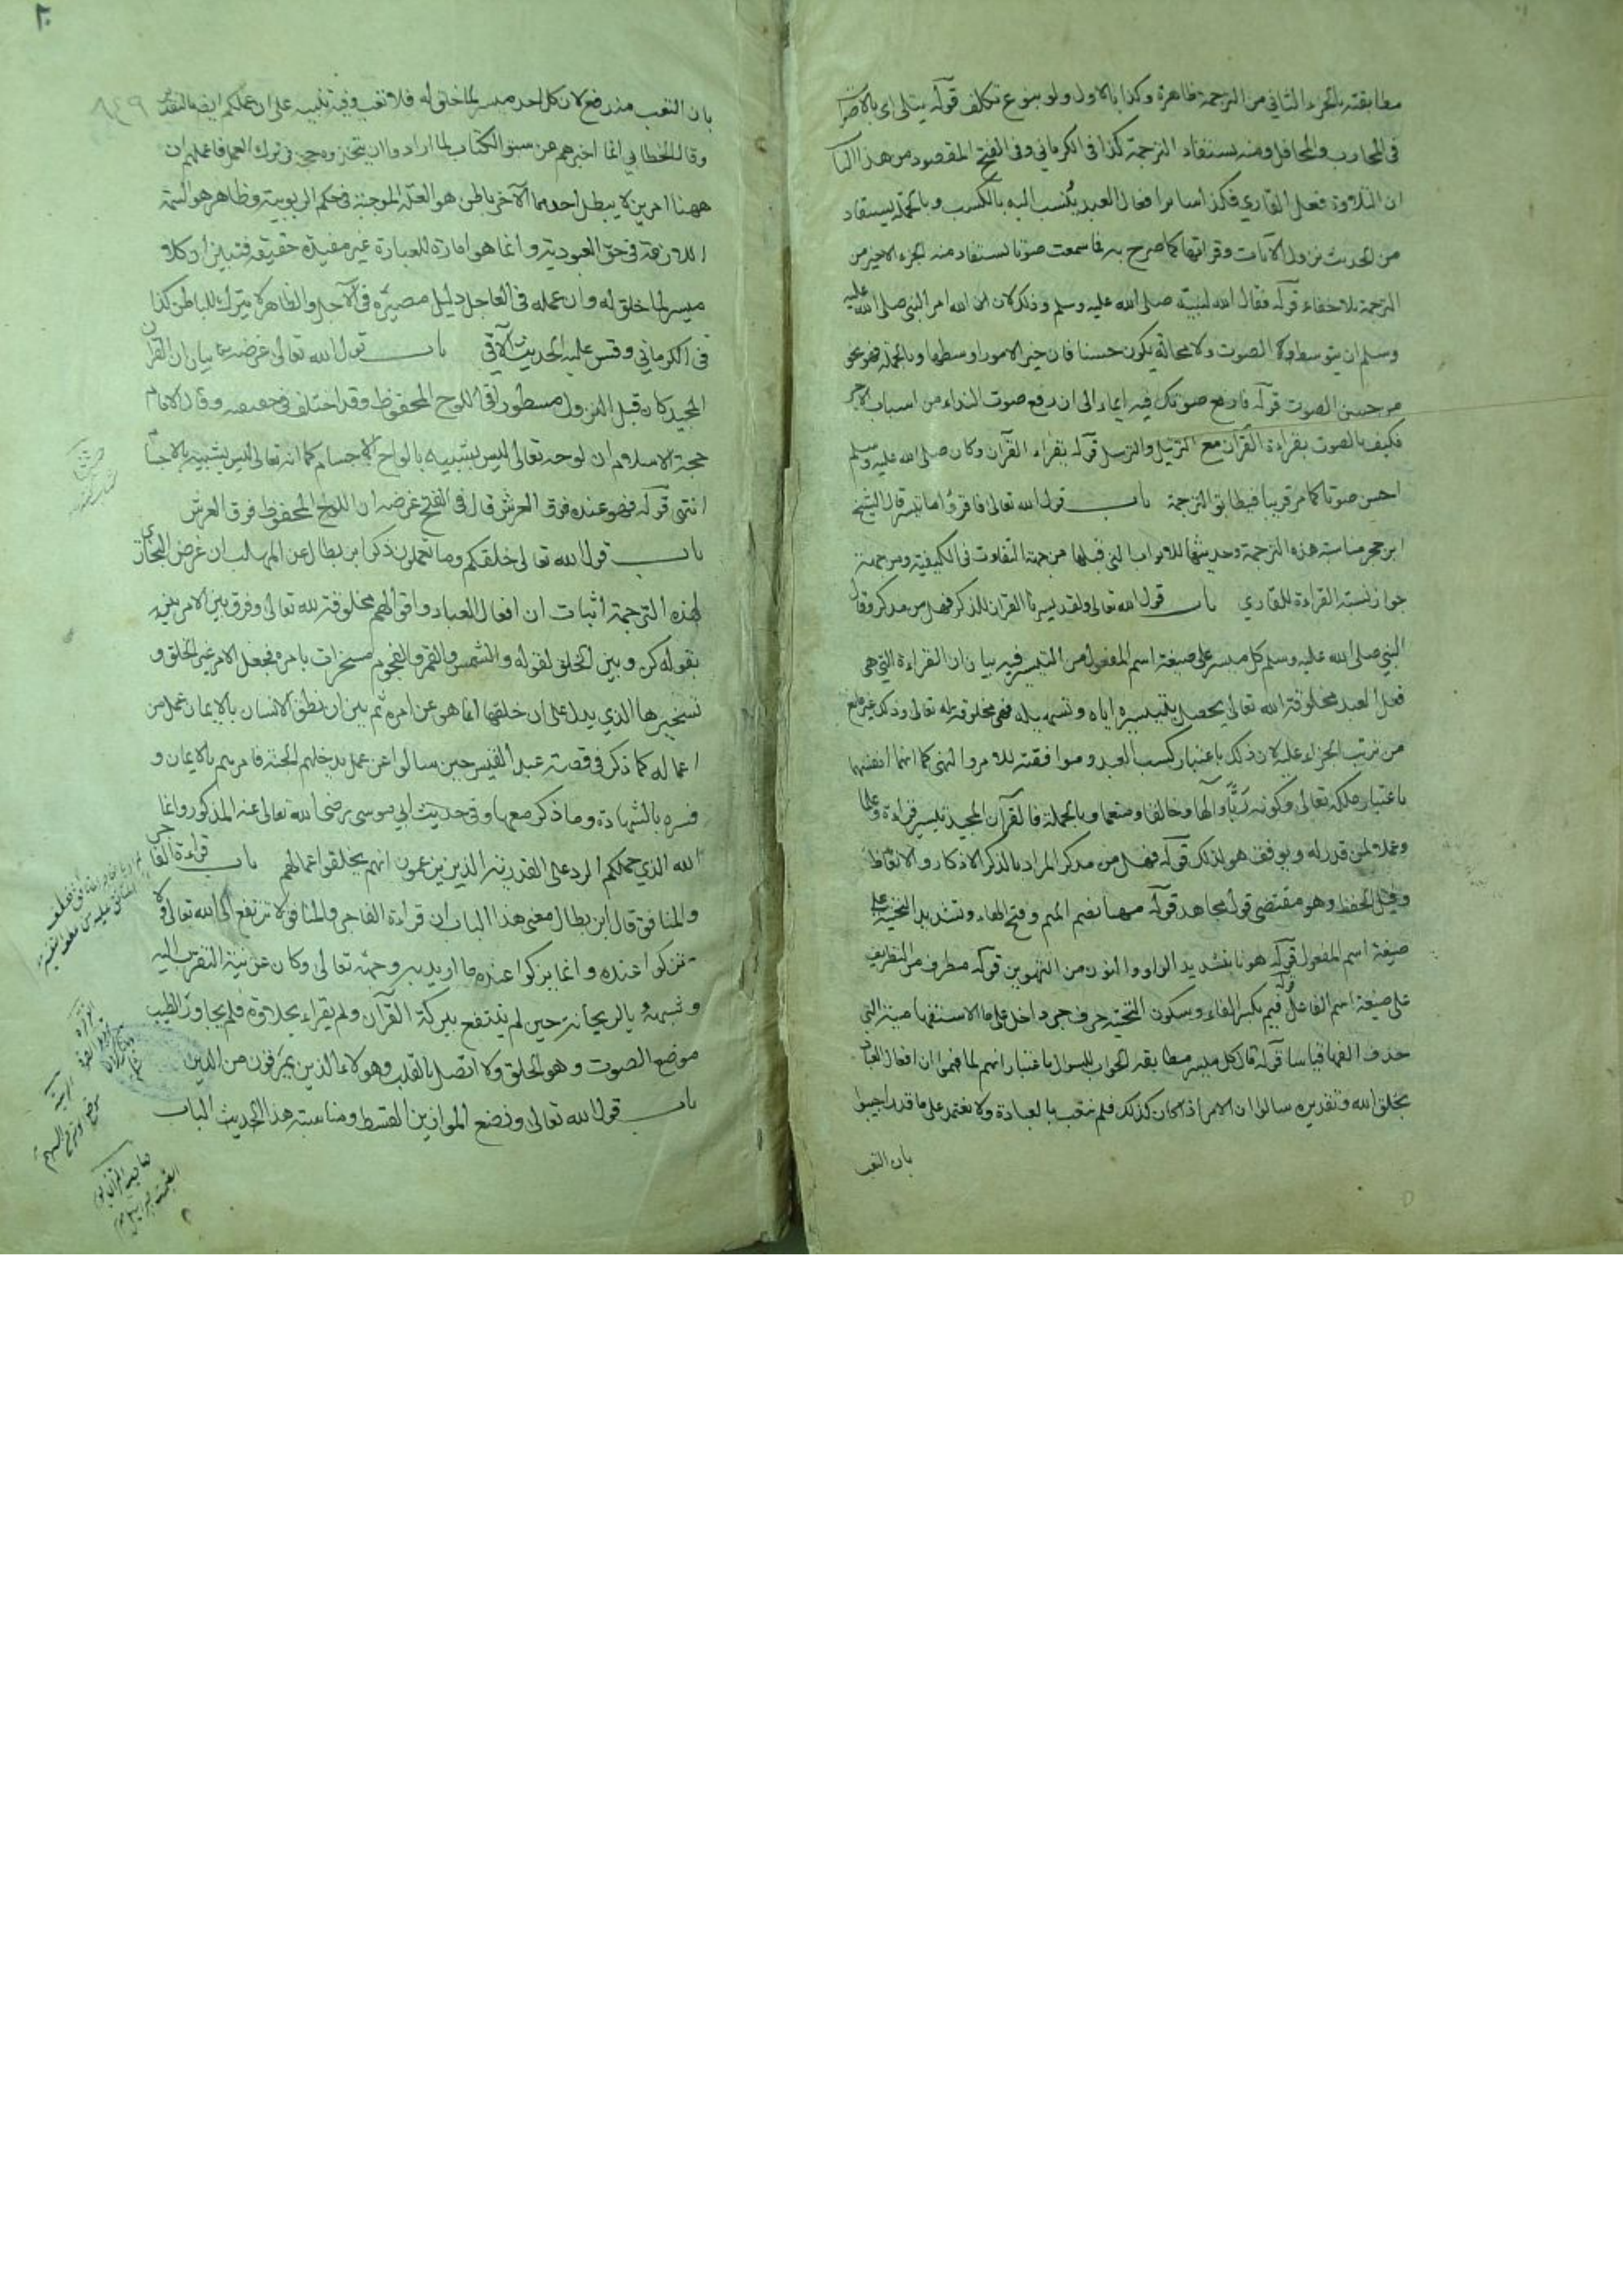 مطابقته بالجزء الثاني من الترجمة ظاهرة وكذا بالاول ولو بنوع تكلف قوله يتلى اى
في المحارب والمحافل ومنه يستفاد الترجمة كذا في الكرماني وفي الفتح المقصود من هذا البا
ان التلاوة فعل القاري فكذا سائر افعال العبد يُنسب اليه بالكسب وبالجملة يستفاد
من الحديث نزول الآيات وقراتها كما صرح به فما سمعت صوتا يستفاد منه الجزء الاخير من
الترجمة بلا خفاء قوله فقال الله لنبيه صلى الله عليه وسلم وذلك لان الله امر النبي صلى الله عليه
وسلم ان يتوسط وكا الصوت ولا محالة يكون حسنا فان خير الامور اوسطها وبالجملة فهو نحو
من حسن الصوت قوله فارفع صوتك فيه ايماء الى ان رفع صوت النداء من اسباب الاجر
فكيف بالصوت بقراءة القرآن مع الترتيل والترسل قوله بقراء القرآن وكان صلى الله عليه وسلم
احسن صوتا كما مر قريبا فيطابق الترجمة باب قول الله تعالى فاقرؤا ما تيسر قال الشيخ
ابن حجر مناسبة هذه الترجمة وحديثها للابواب التي قبلها من جهة التفاوت في الكيفية ومن جهة
جواز نسبة القراءة للقاري باب قول الله تعالى ولقد يسرنا القرآن للذكر فهل من مدكر وقال
النبي صلى الله عليه وسلم كل ميسر على صيغة اسم المفعول من التيسير فيه بيان ان القراءة التي هي
فعل العبد مخلوقة الله تعالى يحصل بتيسيره اياه وتسهيله فهي مخلوقة له تعالى وذلك غير مانع
من ترتب الجزاء عليه لان ذلك باعتبار كسب العبد وموافقته للامر والنهي كما انها
باعتبار ملكه تعالى وكونه ربًّا وآلها وخالقا ومنعما وبالجملة فالقرآن المجيد تيسير قراءة وعلما
وعملا لمن قدر له ويوفقه هو لذلك قوله فهل من مدكر المراد بالذكر الاذكار والاتعاظ
وقيل الحفظ وهو مقتضى قول مجاهد قوله مهيأ بضم الميم وفتح الهاء وتشديد التحتية على
صيغة اسم المفعول قوله هونا بتشديد الواو والنون من التهوين قوله مطرف من التطريف
على صيغة اسم الفاعل قوله فيم بكسر الفاء وسكون التحتية حرف جر داخل على ما الاستفهامية التي
حذف الفها قياسا قوله قال كل ميسر مطابقة الجواب للسوال باعتبار انهم لما فهموا ان افعال العباد
بخلق الله وتقديره سالوا ان الامر اذا كان كذلك فلم نتعب بالعبادة ولا نعتمد على ما قدر اجيبوا
بان التعب
بان التعب مندفع لان كل احد ميسر لما خلق له فلا تعب وفيه تنبيه على ان عملكم ايضا بالتقدير
وقال الخطابي انما اخبرهم عن سبق الكتاب لما ارادوا ان يتخذوه حجة في ترك العمل فاعلمهم ان
ههنا امرين لا يبطل احدهما الآخر باطن هو العلة الموجبة في حكم الربوبية وظاهر هو السمة
اللازمة في حق العبودية وانما هو امارة للعبارة غير مفيدة حقيقة فتبين ان كلا
ميسر لما خلق له وان عمله في العاجل دليل مصيره في الآجل والظاهر لا يترك للباطن كذا
في الكرماني وقس عليه الحديث الآتي باب قول الله تعالى غرضه بيان ان القرآن
المجيد كان قبل النزول مسطورا في اللوح المحفوظ وقد اختلف في وقال الامام
حجة الاسلام ان لوحه تعالى ليس يشبيه بالواح الاجسام كما انه تعالى ليس يشبيه بالاجسام
انتهى قوله فهو عنده فوق العرش قال في الفتح غرضه ان اللوح المحفوظ فوق العرش
باب قول الله تعالى خلقكم وما تعملون ذكر ابن بطال عن المهلب ان غرض البخاري
لهذه الترجمة اثبات ان افعال العباد واقوالهم مخلوقة لله تعالى وفرق بين الامر
بقوله كن وبين الخلق لقوله والشمس والقمر والنجوم مسخرات بامره فجعل الامر غير الخلق و
تسخيرها الذي يدل على ان خلقها انما هو عن امره ثم بين ان نطق الانسان بالايمان عمل من
اعماله كما ذكر في قصة عبد القيس حين سالوا عن عمل يدخلهم الجنة فامرهم بالايمان و
فسره بالشهادة وما ذكر معها وفي حديث ابي موسى رضى الله تعالى عنه المذكور وانما
الله الذي حملكم الرد على القدرية الذين يزعمون انهم يخلقوا اعمالهم باب قراءة الفاجر
والمنافق قال ابن بطال معنى هذا الباب ان قراءة الفاجر والمنافق لا ترتفع الى الله تعالى ولا
تزكوا عنده وانما يزكوا عنده ما اريد به وجهه تعالى وكان عن نية التقرب اليه
وشبهه بالريحانة حين لم ينتفع ببركة القرآن ولم يقراء بحلاوة فلم يجاوز الطيب
موضع الصوت وهو الحلق ولا اتصل بالقلب وهولاء الذين يمرقون من الدين
باب قول الله تعالى ونضع الموازين القسط ومناسبة هذا الحديث الباب